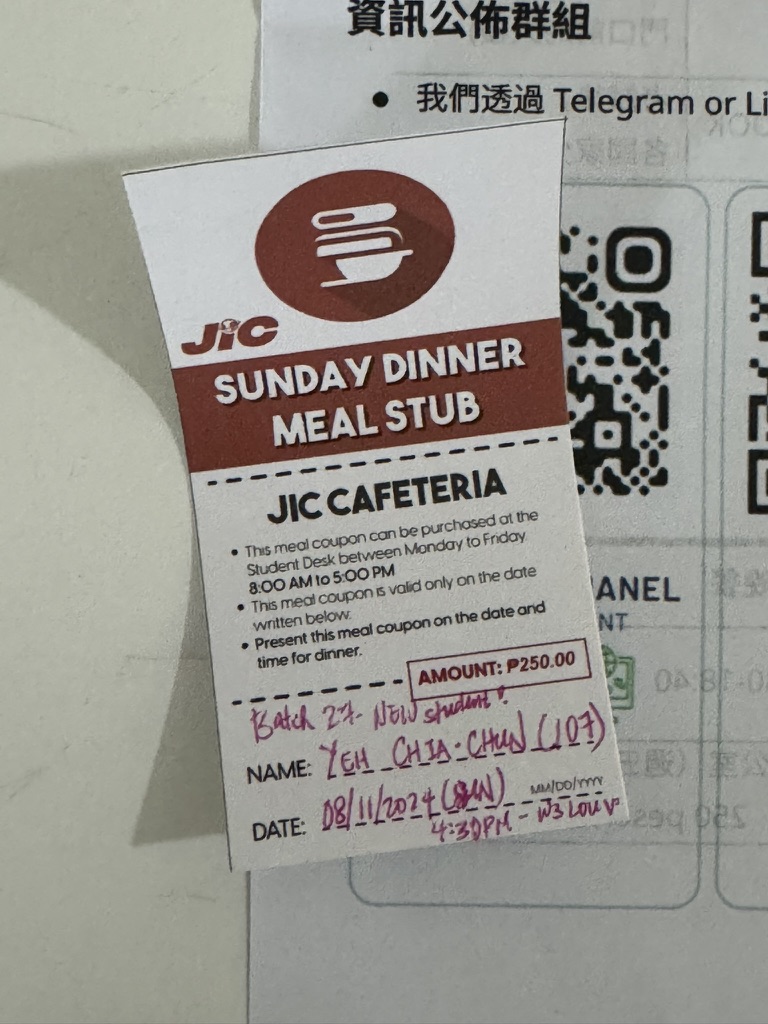 資訊公佈群組
• 我們透過 Telegram or Li
JIC
SUNDAY DINNER
MEAL STUB
JIC CAFETERIA
• This meal coupon can be purchased at the
Student Desk between Monday to Friday
8:00 AM to 5:00 PM
• This meal coupon is valid only on the date
written below.
• Present this meal coupon on the date and
time for dinner.
AMOUNT: ₱250.00
Batch 27- NEW student!
NAME: YEH CHIA-CHUN (107)
DATE: 08/11/2024 (SUN) MM/DD/YYYY
4:30PM -
ANEL
NT